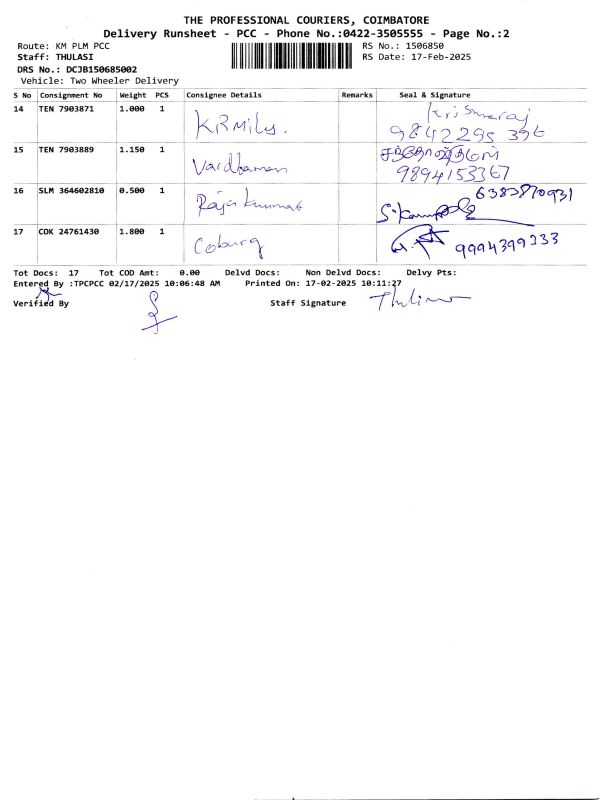 THE PROFESSIONAL COURIERS, COIMBATORE
Delivery Runsheet - PCC - Phone No.:0422-3505555 - Page No.:2
Route: KM PLM PCC RS No.: 1506850
Staff: THULASI RS Date: 17-Feb-2025
DRS No.: DCJB150685002
Vehicle: Two Wheeler Delivery
S No Consignment No Weight PCS Consignee Details Remarks Seal & Signature
14 TEN 7903871 1.000 1 KRMills. 9842295 396
15 TEN 7903889 1.150 1 Vardhaman 9894153367
16 SLM 364602810 0.500 1 Raja Kumar 6383870931
17 COK 24761430 1.800 1 Coburg 9994399333
Tot Docs: 17 Tot COD Amt: 0.00 Delvd Docs: Non Delvd Docs: Delvy Pts:
Entered By :TPCPCC 02/17/2025 10:06:48 AM Printed On: 17-02-2025 10:11:27
Verified By Staff Signature